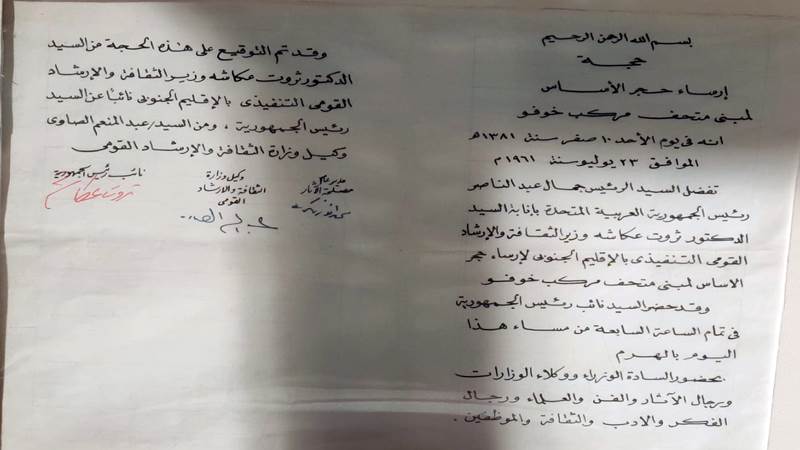 بسم الله الرحمن الرحيم
حجة
إرساء حجر الأساس
لمبنى متحف مركب خوفو
انه فى يوم الأحد ١٠ صفر سنة ١٣٨١ هـ
الموافق ٢٣ يوليو سنة ١٩٦١ م
تفضل السيد الرئيس جمال عبد الناصر
رئيس الجمهورية العربية المتحدة بإنابة السيد
الدكتور ثروت عكاشه وزير الثقافة والإرشاد
القومى التنفيذى بالاقليم الجنوبى لإرساء حجر
الاساس لمبنى متحف مركب خوفو
وقد حضر السيد نائب رئيس الجمهورية
فى تمام الساعة السابعة من مساء هذا
اليوم بالهرم
بحضور السادة الوزراء ووكلاء الوزارات
ورجال الآثار والفن والعلماء ورجال
الفكر والادب والثقافة والموظفين .
وقد تم التوقيع على هذه الحجة من السيد
الدكتور ثروت عكاشه وزير الثقافة والإرشاد
القومى التنفيذى بالإقليم الجنوبى نائبا عن السيد
رئيس الجمهورية ، ومن السيد / عبد المنعم الصاوى
وكيل وزارة الثقافة والإرشاد القومى
مدير عام
مصلحة الآثار
وكيل وزارة
الثقافة والارشاد
القومى
نائب رئيس الجمهورية
ثروت عكاشة